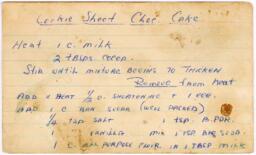 Cookie Sheet Choc. Cake
Heat 1 C. milk
2 TBSPS. COCOA.
Stir until mixture begins to thicken
Remove from heat
ADD & BEAT 1/2 C. SHORTENING & 1 EGG.
ADD 1 C. RAW SUGAR (WELL PACKED)
1/4 TSP SALT 1 TSP. B. PDR.
1 VANILLA MIX 1 TSP BKG SODA
1 C. ALL PURPOSE FLOUR. IN 1 TBSP MILK